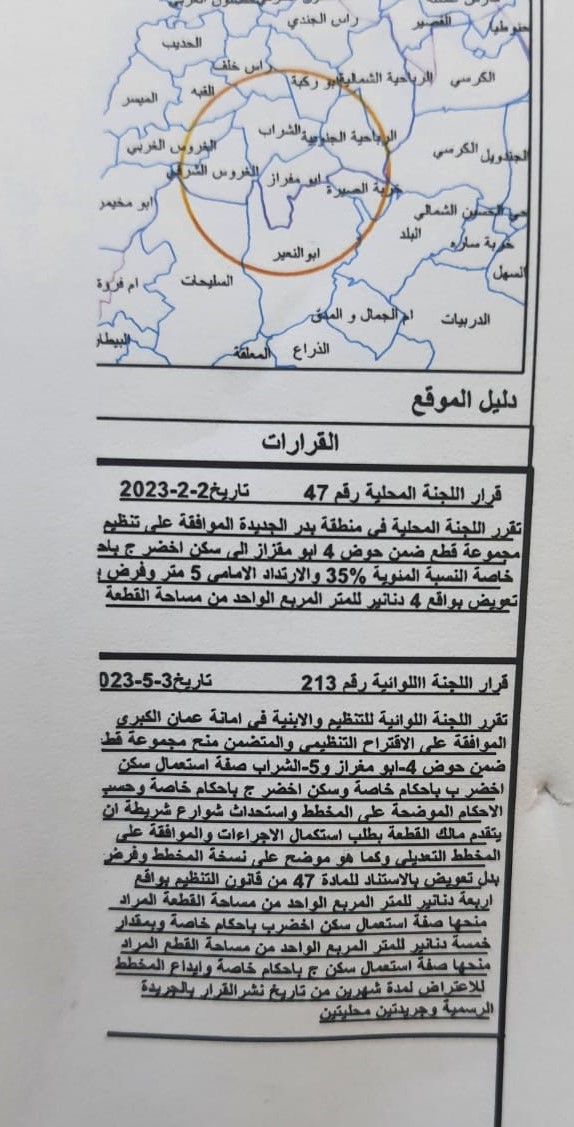 راس الجندي
القصير
الحديب
راس خلف
ابو ركبة
الرباحية الشمالية
الكرسي
القبه
الميسر
الشراب
الرباحية الجنوبية
الغروس الغربي
الكرسي
الجندويل
الغروس الشرقي
ابو مغراز
خربة الصبرة
حي الحسين الشمالي
البلد
خربة ساره
ابو النعير
السهل
ام فروة
السليحات
ام الجمال و المدق
الدربيات
المعلقة
الذراع
دليل الموقع
القرارات
قرار اللجنة المحلية رقم 47 تاريخ2-2-2023
تقرر اللجنة المحلية في منطقة بدر الجديدة الموافقة على تنظيم
مجموعة قطع ضمن حوض 4 ابو مغزاز الى سكن اخضر ج باحـ
خاصة النسبة المئوية 35% والارتداد الامامي 5 متر وفرض بـ
تعويض بواقع 4 دنانير للمتر المربع الواحد من مساحة القطعة
قرار اللجنة االلوائية رقم 213 تاريخ3-5-023
تقرر اللجنة اللوائية للتنظيم والابنية في امانة عمان الكبرى
الموافقة على الاقتراح التنظيمي والمتضمن منح مجموعة قطـ
ضمن حوض 4-ابو مغراز و5-الشراب صفة استعمال سكن
اخضر ب باحكام خاصة وسكن اخضر ج باحكام خاصة وحسب
الاحكام الموضحة على المخطط واستحداث شوارع شريطة ان
يتقدم مالك القطعة بطلب استكمال الاجراءات والموافقة على
المخطط التعديلي وكما هو موضح على نسخة المخطط وفرض
بدل تعويض بالاستناد للمادة 47 من قانون التنظيم بواقع
اربعة دنانير للمتر المربع الواحد من مساحة القطعة المراد
منحها صفة استعمال سكن اخضرب باحكام خاصة وبمقدار
خمسة دنانير للمتر المربع الواحد من مساحة القطع المراد
منحها صفة استعمال سكن ج باحكام خاصة وايداع المخطط
للاعتراض لمدة شهرين من تاريخ نشرالقرار بالجريدة
الرسمية وجريدتين محليتين